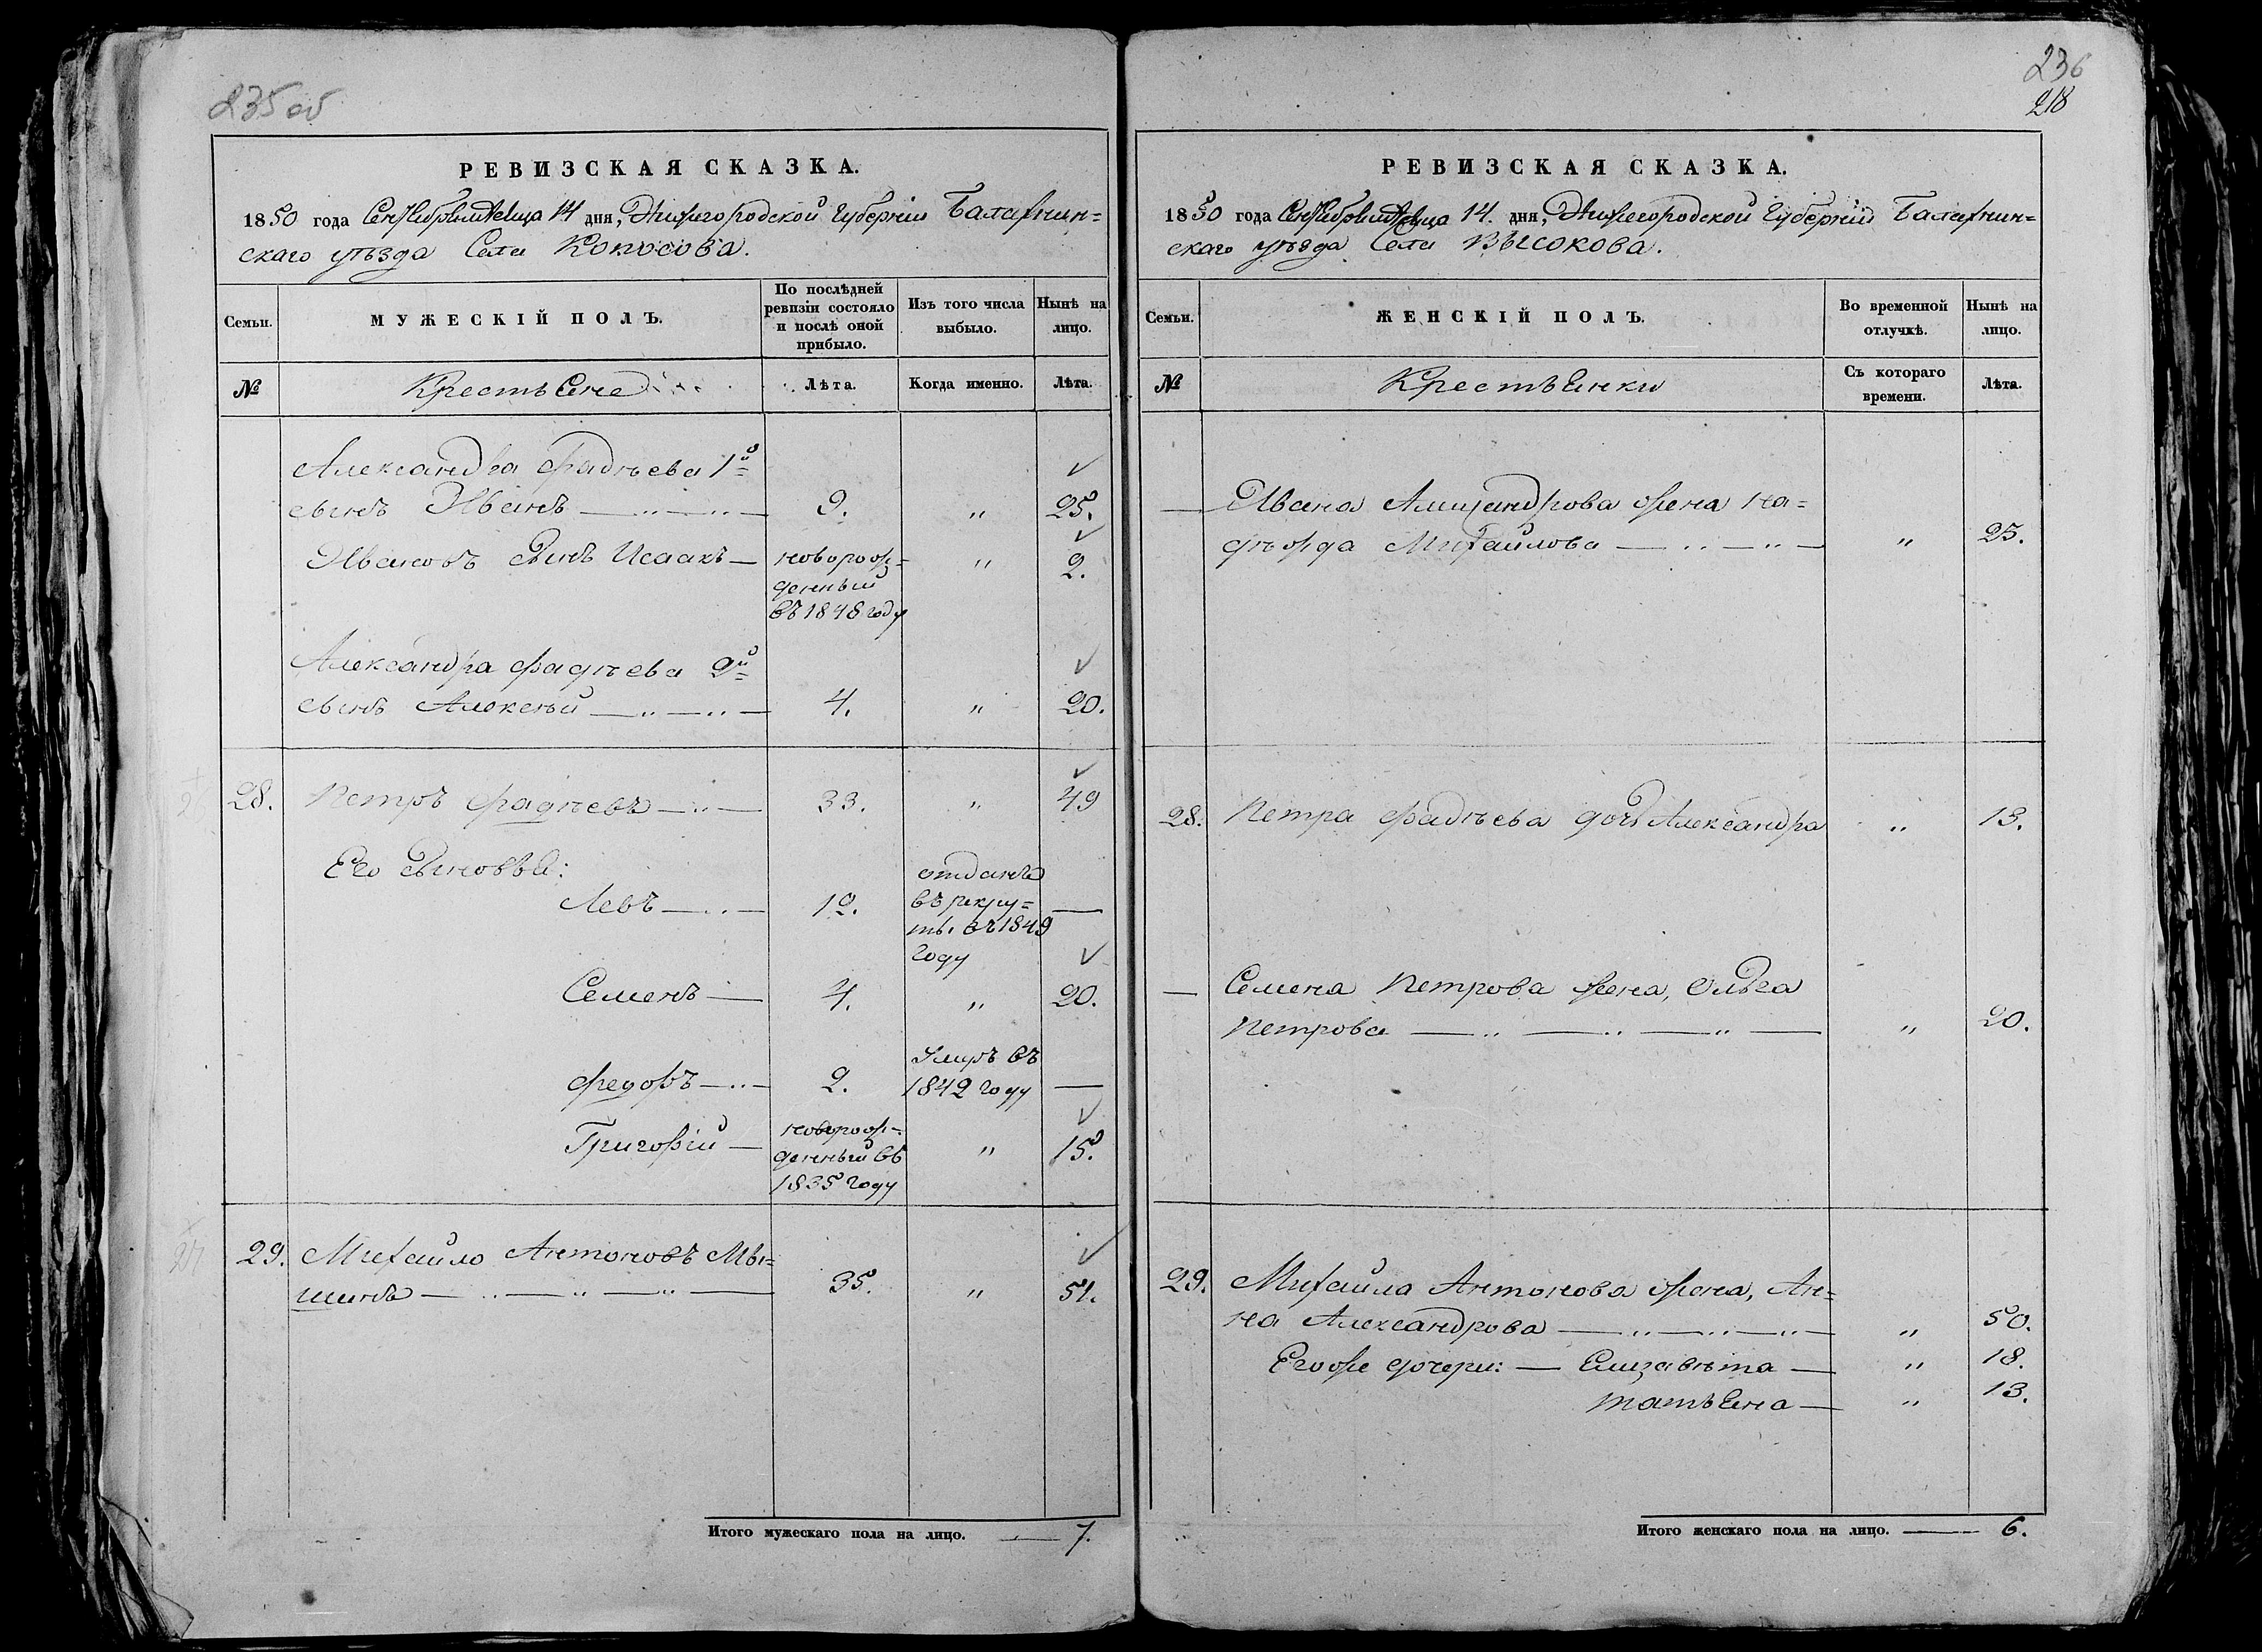 235 об
РЕВИЗСКАЯ СКАЗКА.
1850 года Сентября месяца 14 дня, Нижегородской Губернiи Балахнин=
скаго уѣзда Села Копосова.
Семьи.
МУЖЕСКІЙ ПОЛЪ.
По послѣдней
ревизіи состояло
и послѣ оной
прибыло.
Изъ того числа
выбыло.
Нынѣ на
лицо.
№
Крестьяне
Лѣта.
Когда именно.
Лѣта.
Александра Фадѣева 1й
сынъ Иванъ — 9. " 25.
Ивановъ сынъ Исаакъ — новорож=
денный
въ 1848 году " 2.
Александра Фадѣева 2й
сынъ Алексѣй — 4. " 20.
28. Петръ Фадѣевъ — 33. " 49
Его сыновья:
Левъ — 12. отданъ
въ рекру=
ты въ 1849
году —
Семенъ — 4. " 20.
Федоръ — 2. Умеръ въ
1842 году —
Григорій — новорож=
денный въ
1835 году " 15.
29. Михайло Антоновъ Мы=
шинъ — 35. " 51.
Итого мужескаго пола на лицо. — 7.
236
218
РЕВИЗСКАЯ СКАЗКА.
1850 года Сентября месяца 14. дня, Нижегородской Губерніи Балахнин=
скаго уѣзда Села Высокова.
Семьи.
ЖЕНСКІЙ ПОЛЪ.
Во временной
отлучкѣ.
Нынѣ на
лицо.
№
Крестьянки
Съ котораго
времени.
Лѣта.
— Ивана Александрова жена На=
дѣжда Михайлова — " 25.
28. Петра Фадѣева дочь Александра " 13.
— Семена Петрова жена, Ольга
Петрова — " 20.
29. Михайла Антонова жена, Ан=
на Александрова — " 50.
Его же дочери: — Елизавѣта — " 18.
Татьяна — " 13.
Итого женскаго пола на лицо. — 6.